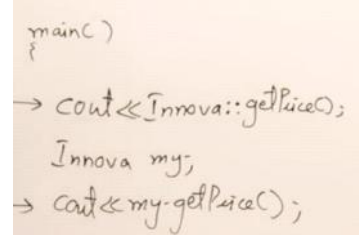 main()
{
→ cout<<Innova::getPrice();
Innova my;
→ cout<<my.getPrice();